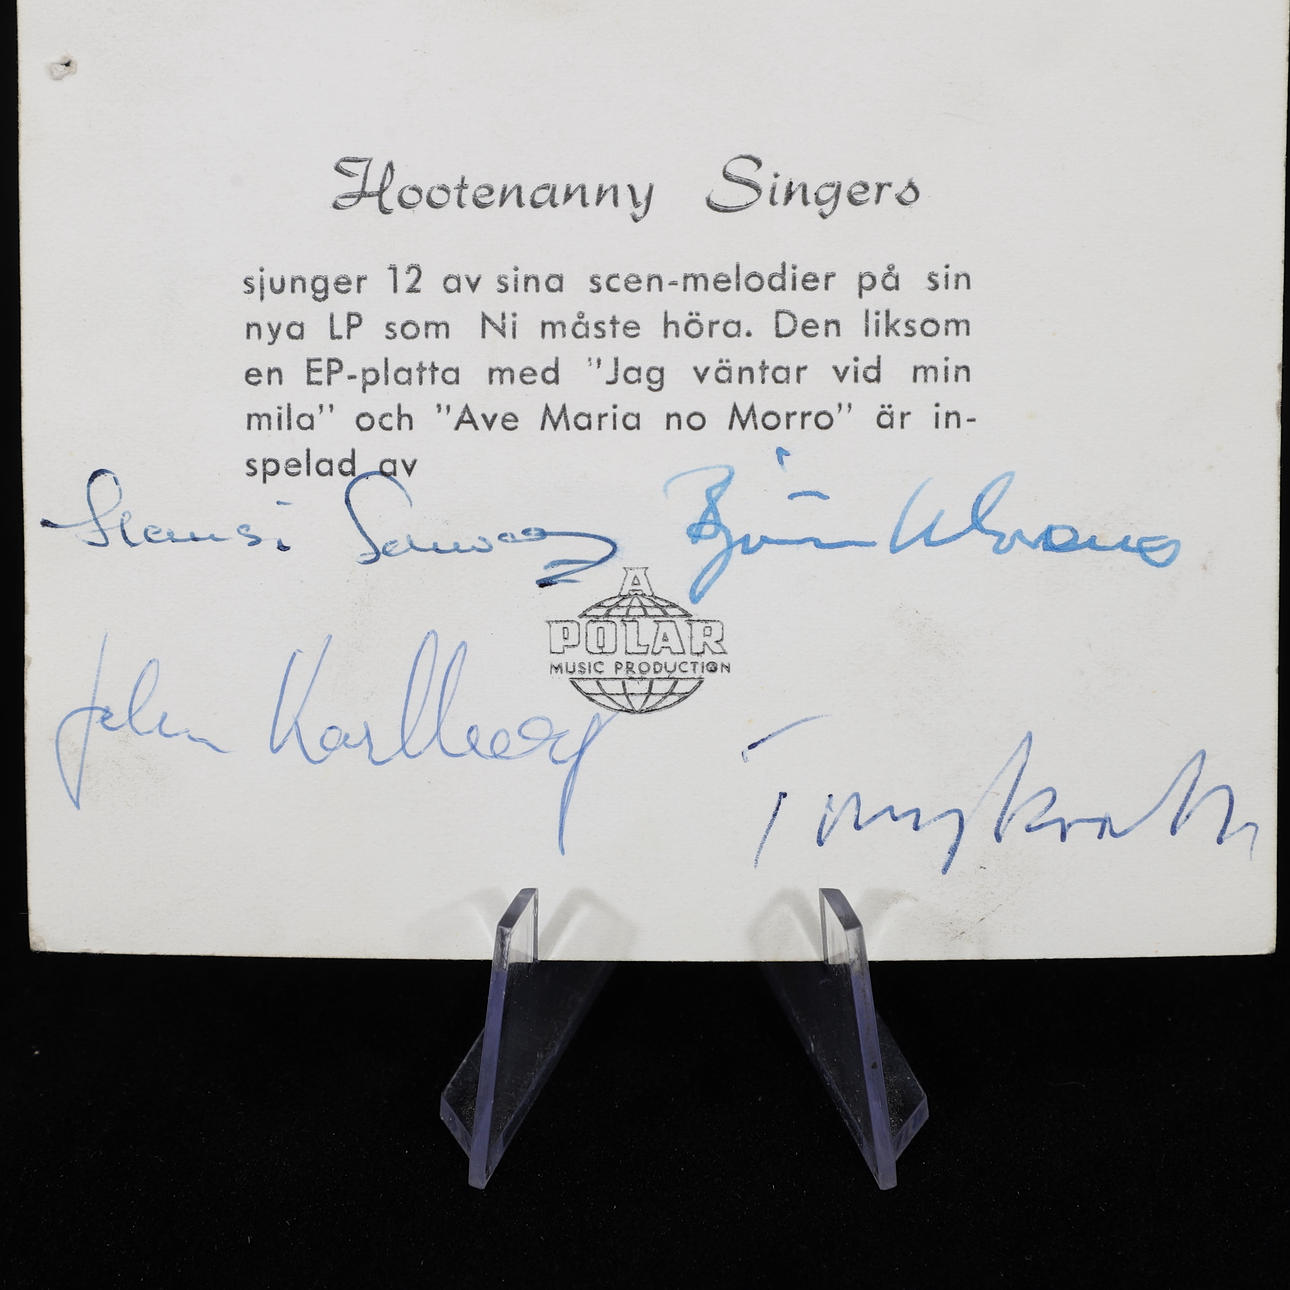 Hootenanny Singers
sjunger 12 av sina scen-melodier på sin
nya LP som Ni måste höra. Den liksom
en EP-platta med "Jag väntar vid min
mila" och "Ave Maria no Morro" är in-
spelad av
Hansi Schwarz Björn Ulvaeus
A
POLAR
MUSIC PRODUCTION
Johan Karlberg
Tony Rooth